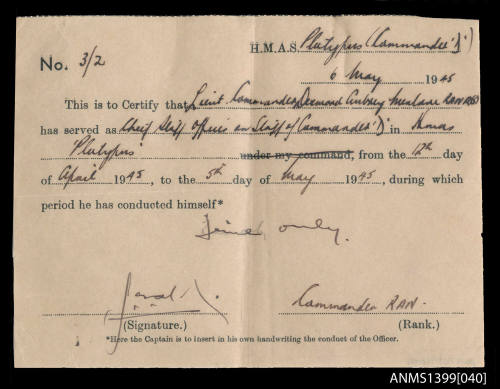 H.M.A.S. Platypus (Commander 'D')
No. 3/2
6 May 1945
This is to Certify that Lieut. Commander Desmond Aubrey RANR(S)
has served as Chief Staff Officer on Staff of Commander 'D' in Hmas
Platypus under my command, from the 12th day
of April 1945, to the 5th day of May 1945, during which
period he has conducted himself*
Time only.
Commander RAN.
(Signature.) (Rank.)
*Here the Captain is to insert in his own handwriting the conduct of the Officer.
ANMS1399[040]